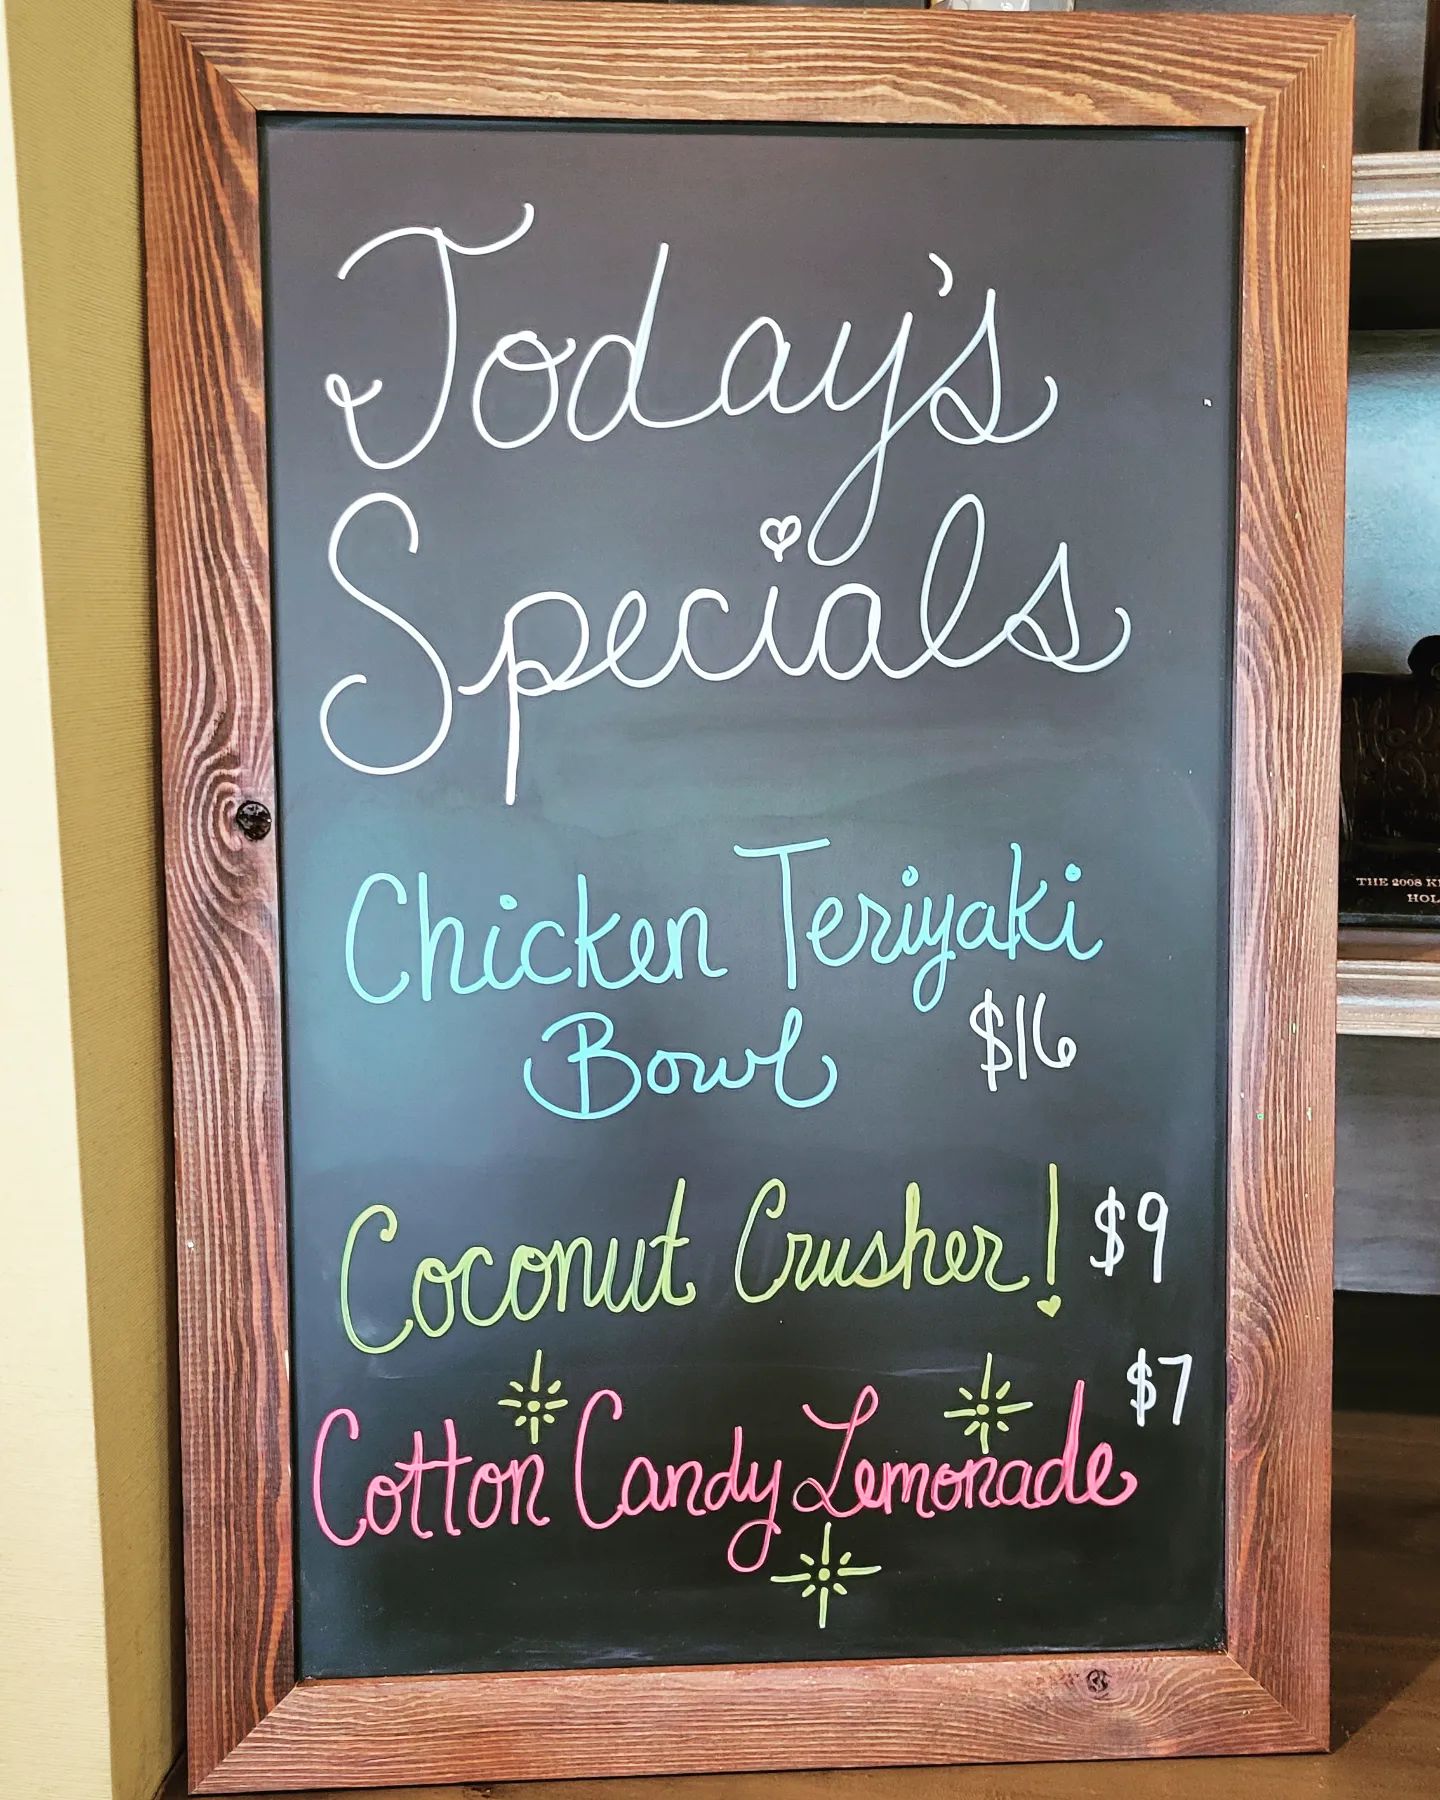 Today's
Specials
Chicken Teriyaki
Bowl $16
Coconut Crusher! $9
$7
Cotton Candy Lemonade
THE 2008 K
HOL